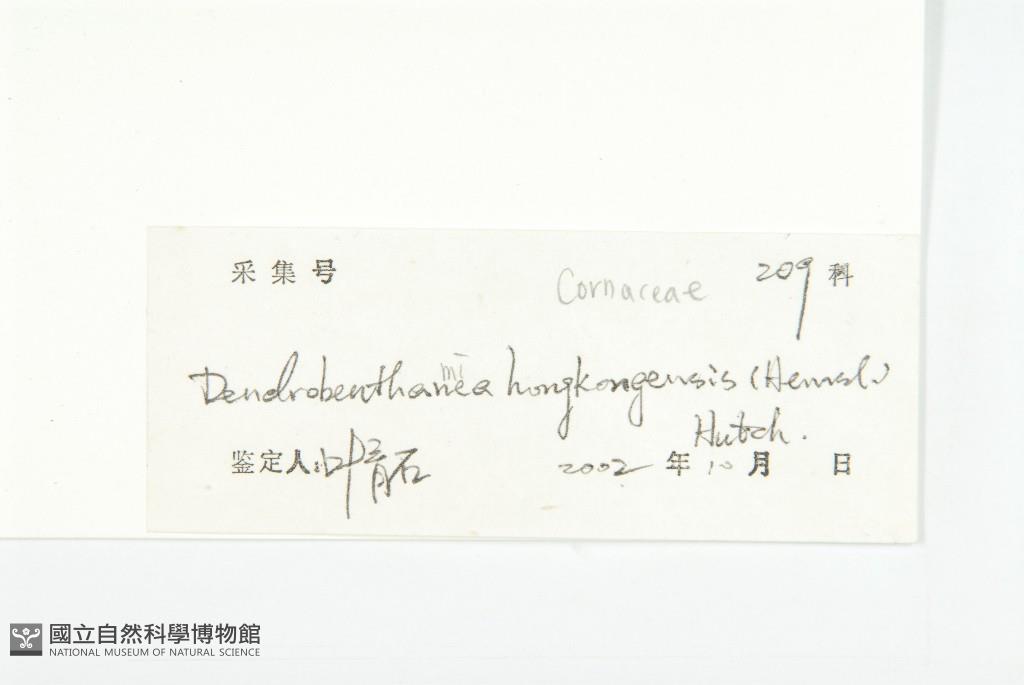 采集号
Cornaceae 209科
mi
Dendrobenthamea hongkongensis (Hemsl.)
Hutch.
鉴定人: 叶育石 2002年10月 日
國立自然科學博物館
NATIONAL MUSEUM OF NATURAL SCIENCE